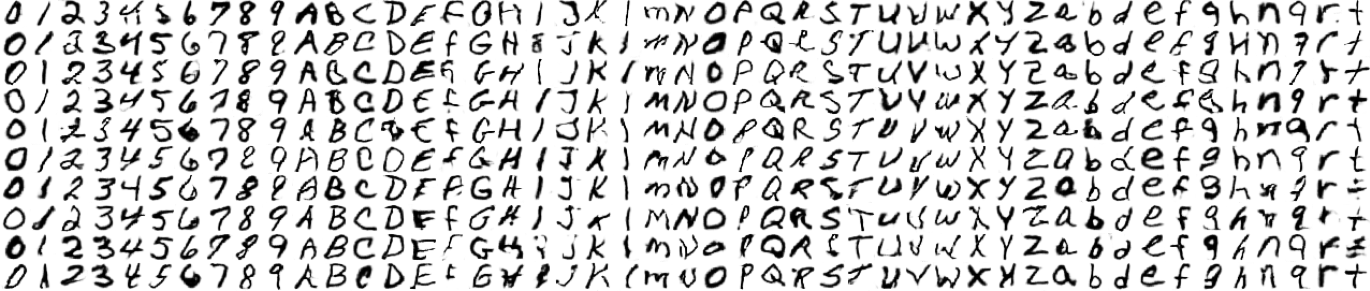 0 1 2 3 4 5 6 7 8 9 A B C D E f G H I J K l m N O P Q R S T U V W X Y Z a b d e f g h n q r t
0 1 2 3 4 5 6 7 8 9 A B C D E f G H J K l m N O P Q R S T U V W X Y Z a b d e f g h n q r t
0 1 2 3 4 5 6 7 8 9 A B C D E G H I J K l m N O P Q R S T U V W X Y Z a b d e f g h n q r t
0 1 2 3 4 5 6 7 8 9 A B C D E G H I J K l M N O P Q R S T U V W X Y Z a b d e f g h n q r t
0 1 2 3 4 5 6 7 8 9 A B C E f G H I J K l m N O P Q R S T U V W X Y Z a b d e f g h n q r t
0 1 2 3 4 5 6 7 8 9 A B C D E f G H I J K l m N O P Q R S T U V W X Y Z a b d e f g h n q r t
0 1 2 3 4 5 6 7 8 9 A B C D E F G H I J K l m N O P Q R S T U V W X Y Z a b d e f g h n q r
0 1 2 3 4 5 6 7 8 9 A B C D E f G H I J K l M N O P Q R S T U V W X Y Z a b d e f g h n q r t
0 1 2 3 4 5 6 7 8 9 A B C D E G H J K l m N O P Q R S T U V W X Y Z a b d e f g h n q r
0 1 2 3 4 5 6 7 8 9 A B C D E G H J K l m N O P Q R S T U V W X Y Z a b d e f g h n q r t